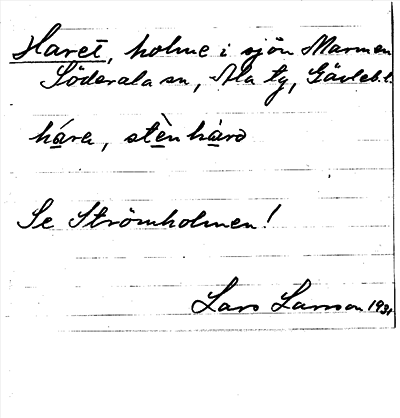 Haret, holme i sjön Marmen
Söderala sn, Ala tg, Gävleb.l.
hára, stè̱nhàrd
Se Strömholmen!
Lars Larsson 1931